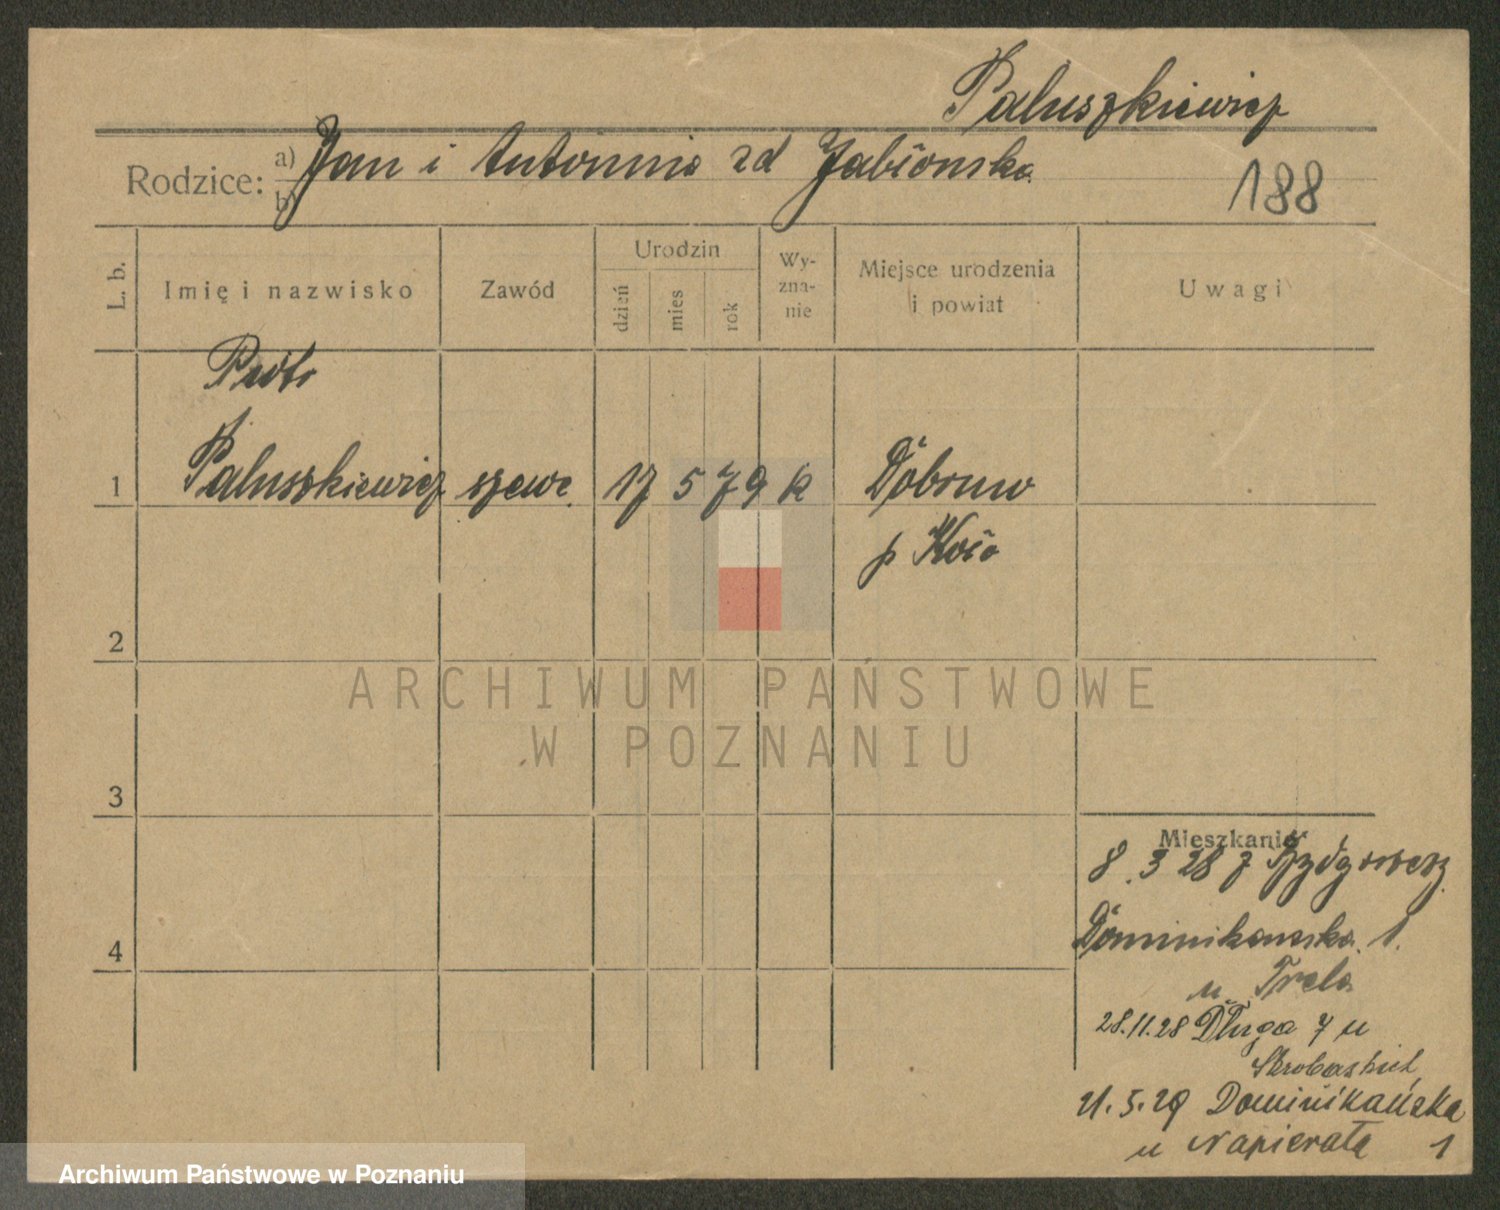 Paluszkiewicz
Rodzice: a) Jan i Antonina zd Jabłonska
b)
188
L. b.
Imię i nazwisko
Zawód
Urodzin
dzień
mies
rok
Wy-
zna-
nie
Miejsce urodzenia
i powiat
Uwagi
Piotr
1 Paluszkiewicz szewc 17 5 79 k Dobrów
p Koło
2
ARCHIWUM PAŃSTWOWE
W POZNANIU
3
Mieszkanie
8.3 28 z Bydgoszcz
Dominikanska 1.
4
u Trela
28.11.28 Długa 7 u
21.5.29 Dominikańska
u Napierała 1
Archiwum Państwowe w Poznaniu